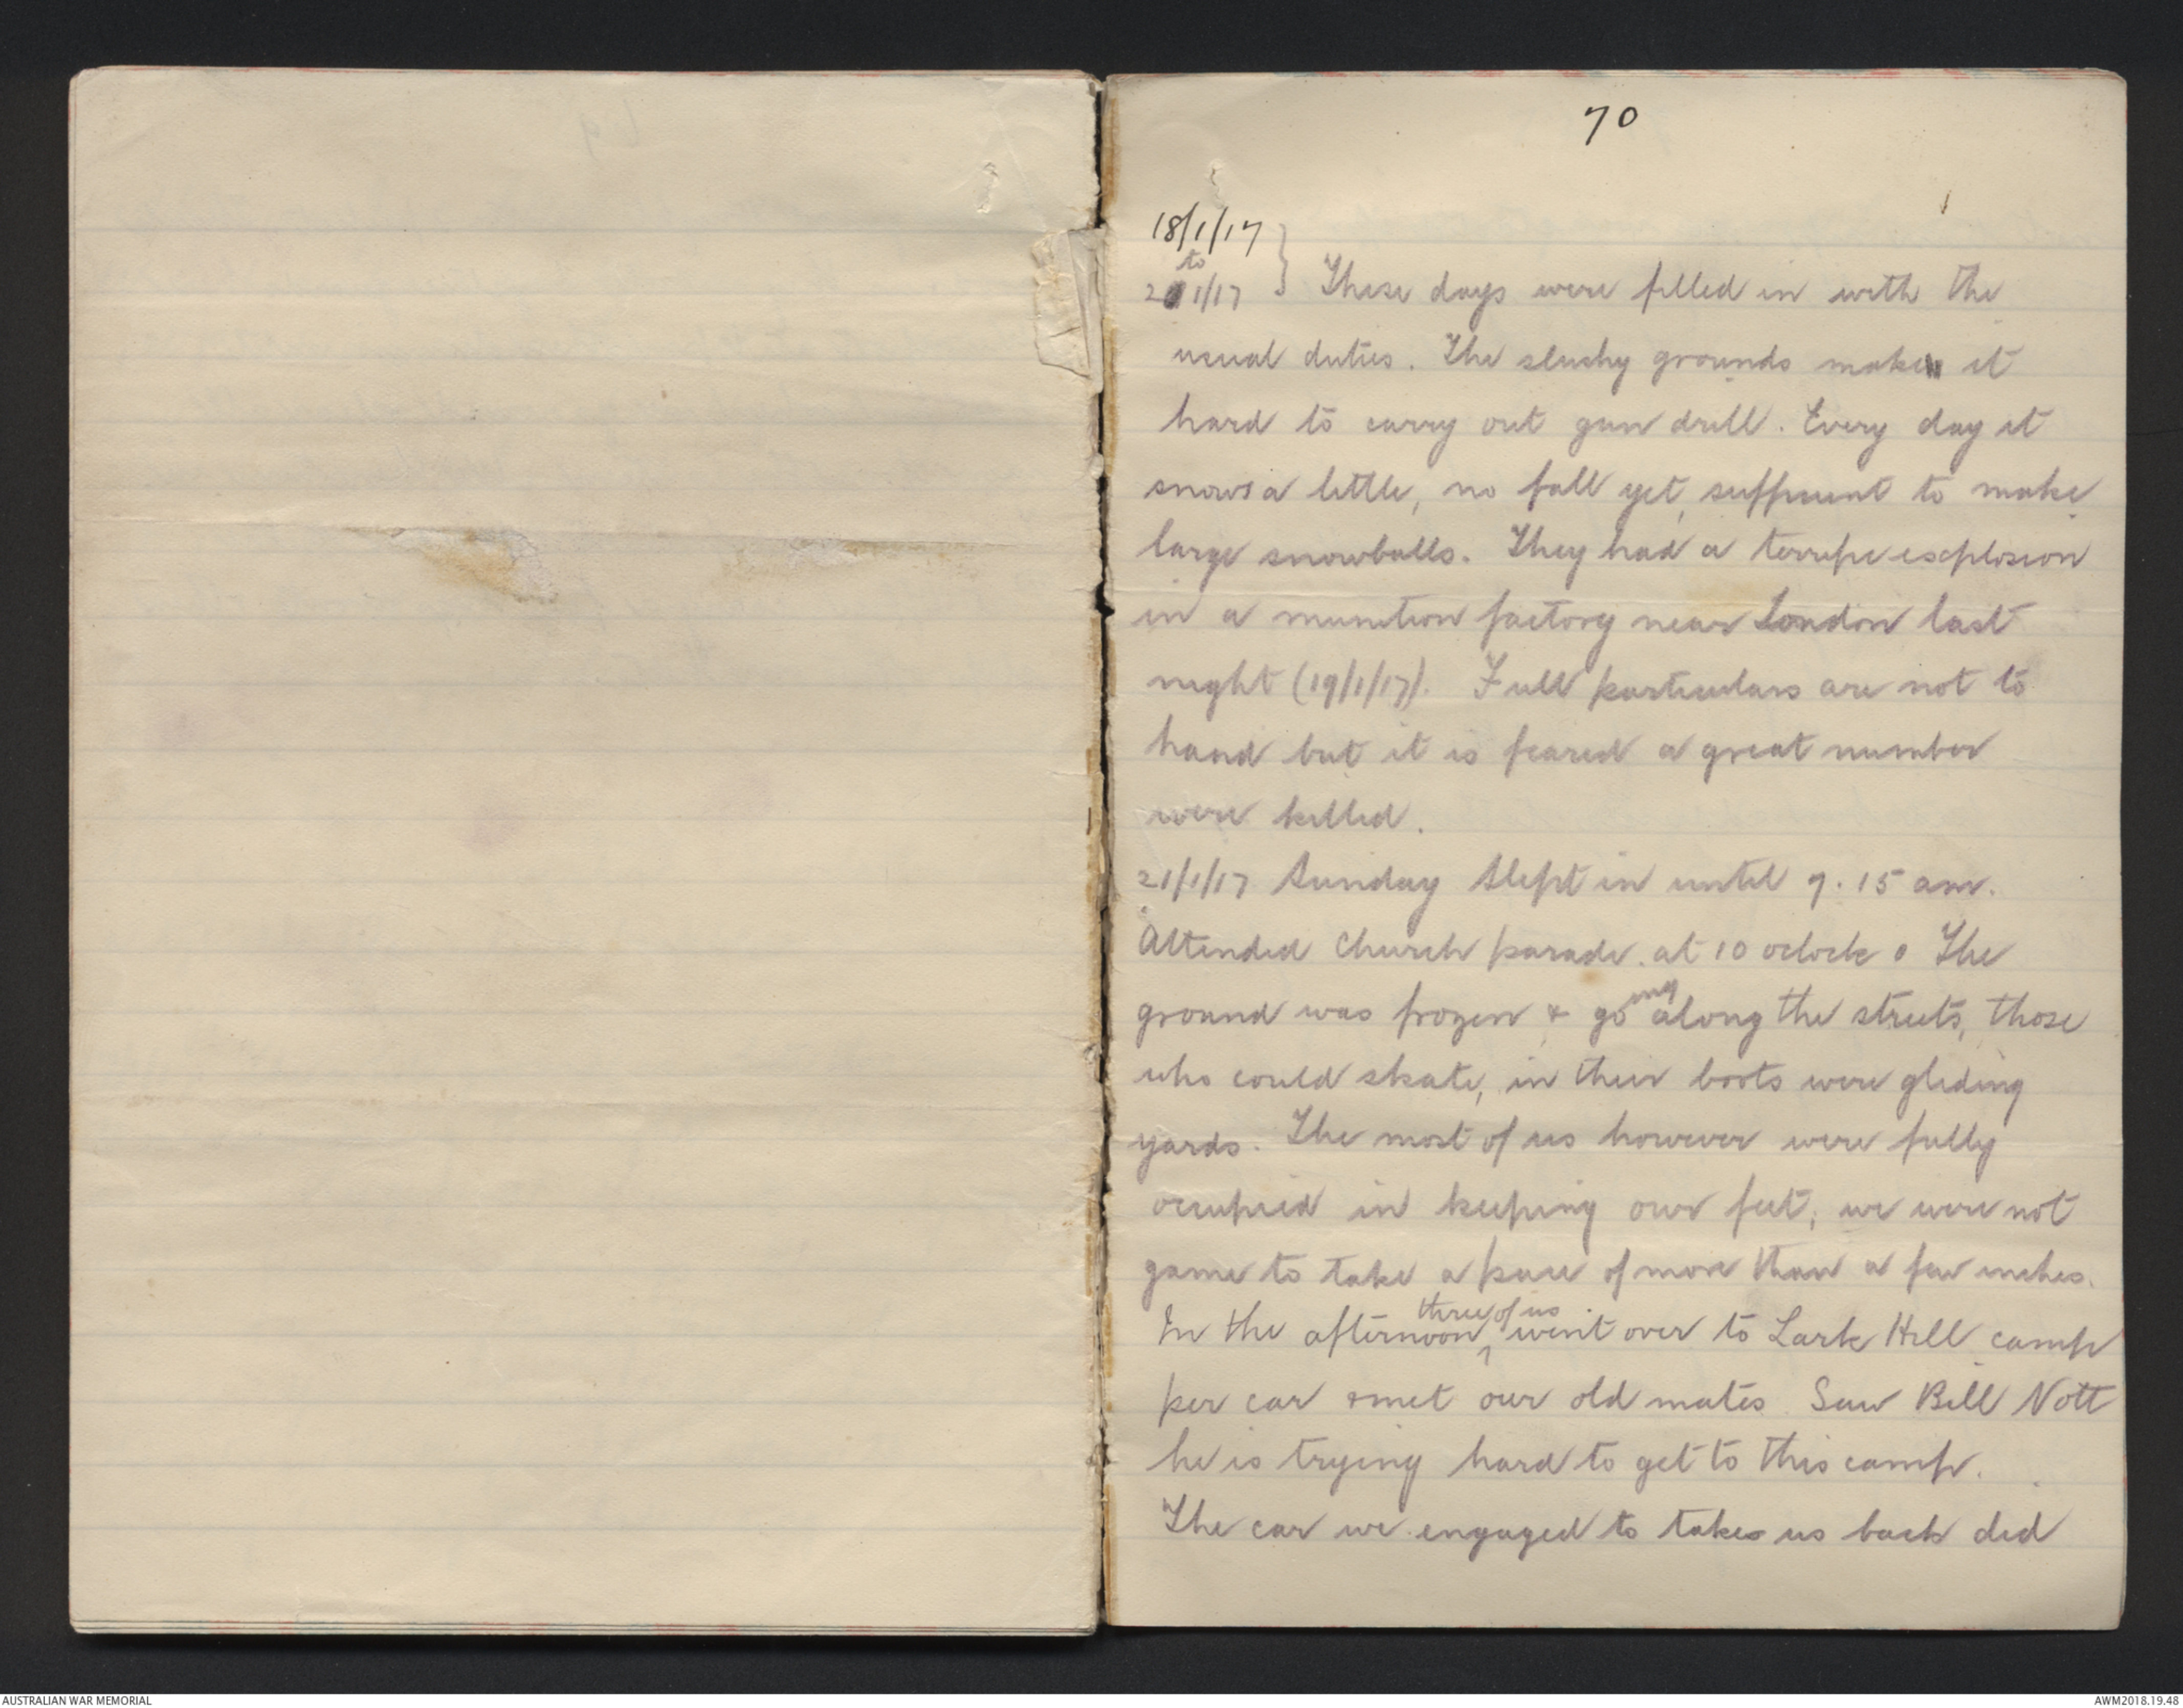 70
18/1/17
to
20/1/17 } These days were filled in with the
usual duties. The slushy grounds make it
hard to carry out gun drill. Every day it
snows a little, no fall yet, sufficient to make
large snowballs. They had a terrific explosion
in a munition factory near London last
night (19/1/17). Full particulars are not to
hand but it is feared a great number
were killed.
21/1/17 Sunday Slept in until 7.15 am.
Attended Church parade. at 10 oclock. The
ground was frozen & going along the streets, those
who could skate, in their boots were gliding
yards. The most of us however were fully
occupied in keeping our feet, we were not
game to take a pace of more than a few inches.
In the afternoon three of us went over to Lark Hill camp
per car & met our old mates. Saw Bill Nott
he is trying hard to get to this camp.
The car we engaged to take us back did
AUSTRALIAN WAR MEMORIAL
AWM2018.19.48